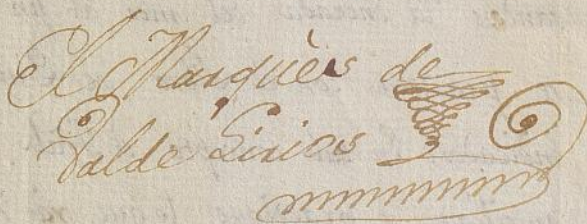 El Marquès de
Valde Lirios